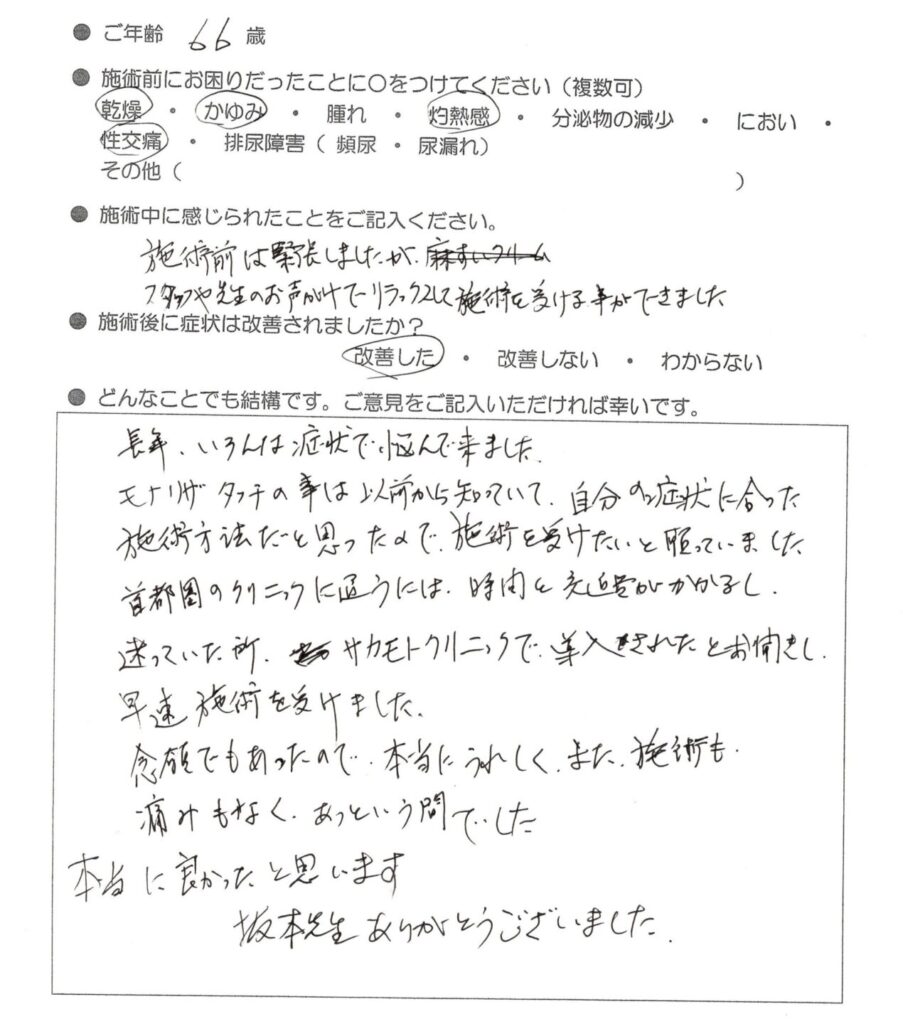 ● ご年齢 66 歳
● 施術前にお困りだったことに〇をつけてください（複数可）
乾燥 ・ かゆみ ・ 腫れ ・ 灼熱感 ・ 分泌物の減少 ・ におい ・
性交痛 ・ 排尿障害（ 頻尿 ・ 尿漏れ）
その他（ ）
● 施術中に感じられたことをご記入ください。
施術前は緊張しましたが、麻すいクリーム
スタッフや先生のお声がけでリラックスして施術を受ける事ができました
● 施術後に症状は改善されましたか？
改善した ・ 改善しない ・ わからない
● どんなことでも結構です。ご意見をご記入いただければ幸いです。
長年、いろんな症状で悩んで来ました。
モナリザ タッチの事は以前から知っていて、自分の症状に合った
施術方法だと思ったので、施術を受けたいと願っていました
首都圏のクリニックに通うには、時間と交通費がかかるし、
迷っていた所、サカモトクリニックで、導入されたとお聞きし、
早速 施術を受けました。
念願でもあったので、本当にうれしく、また、施術も、
痛みもなく、あっという間でした
本当に良かったと思います
坂本先生ありがとうございました。